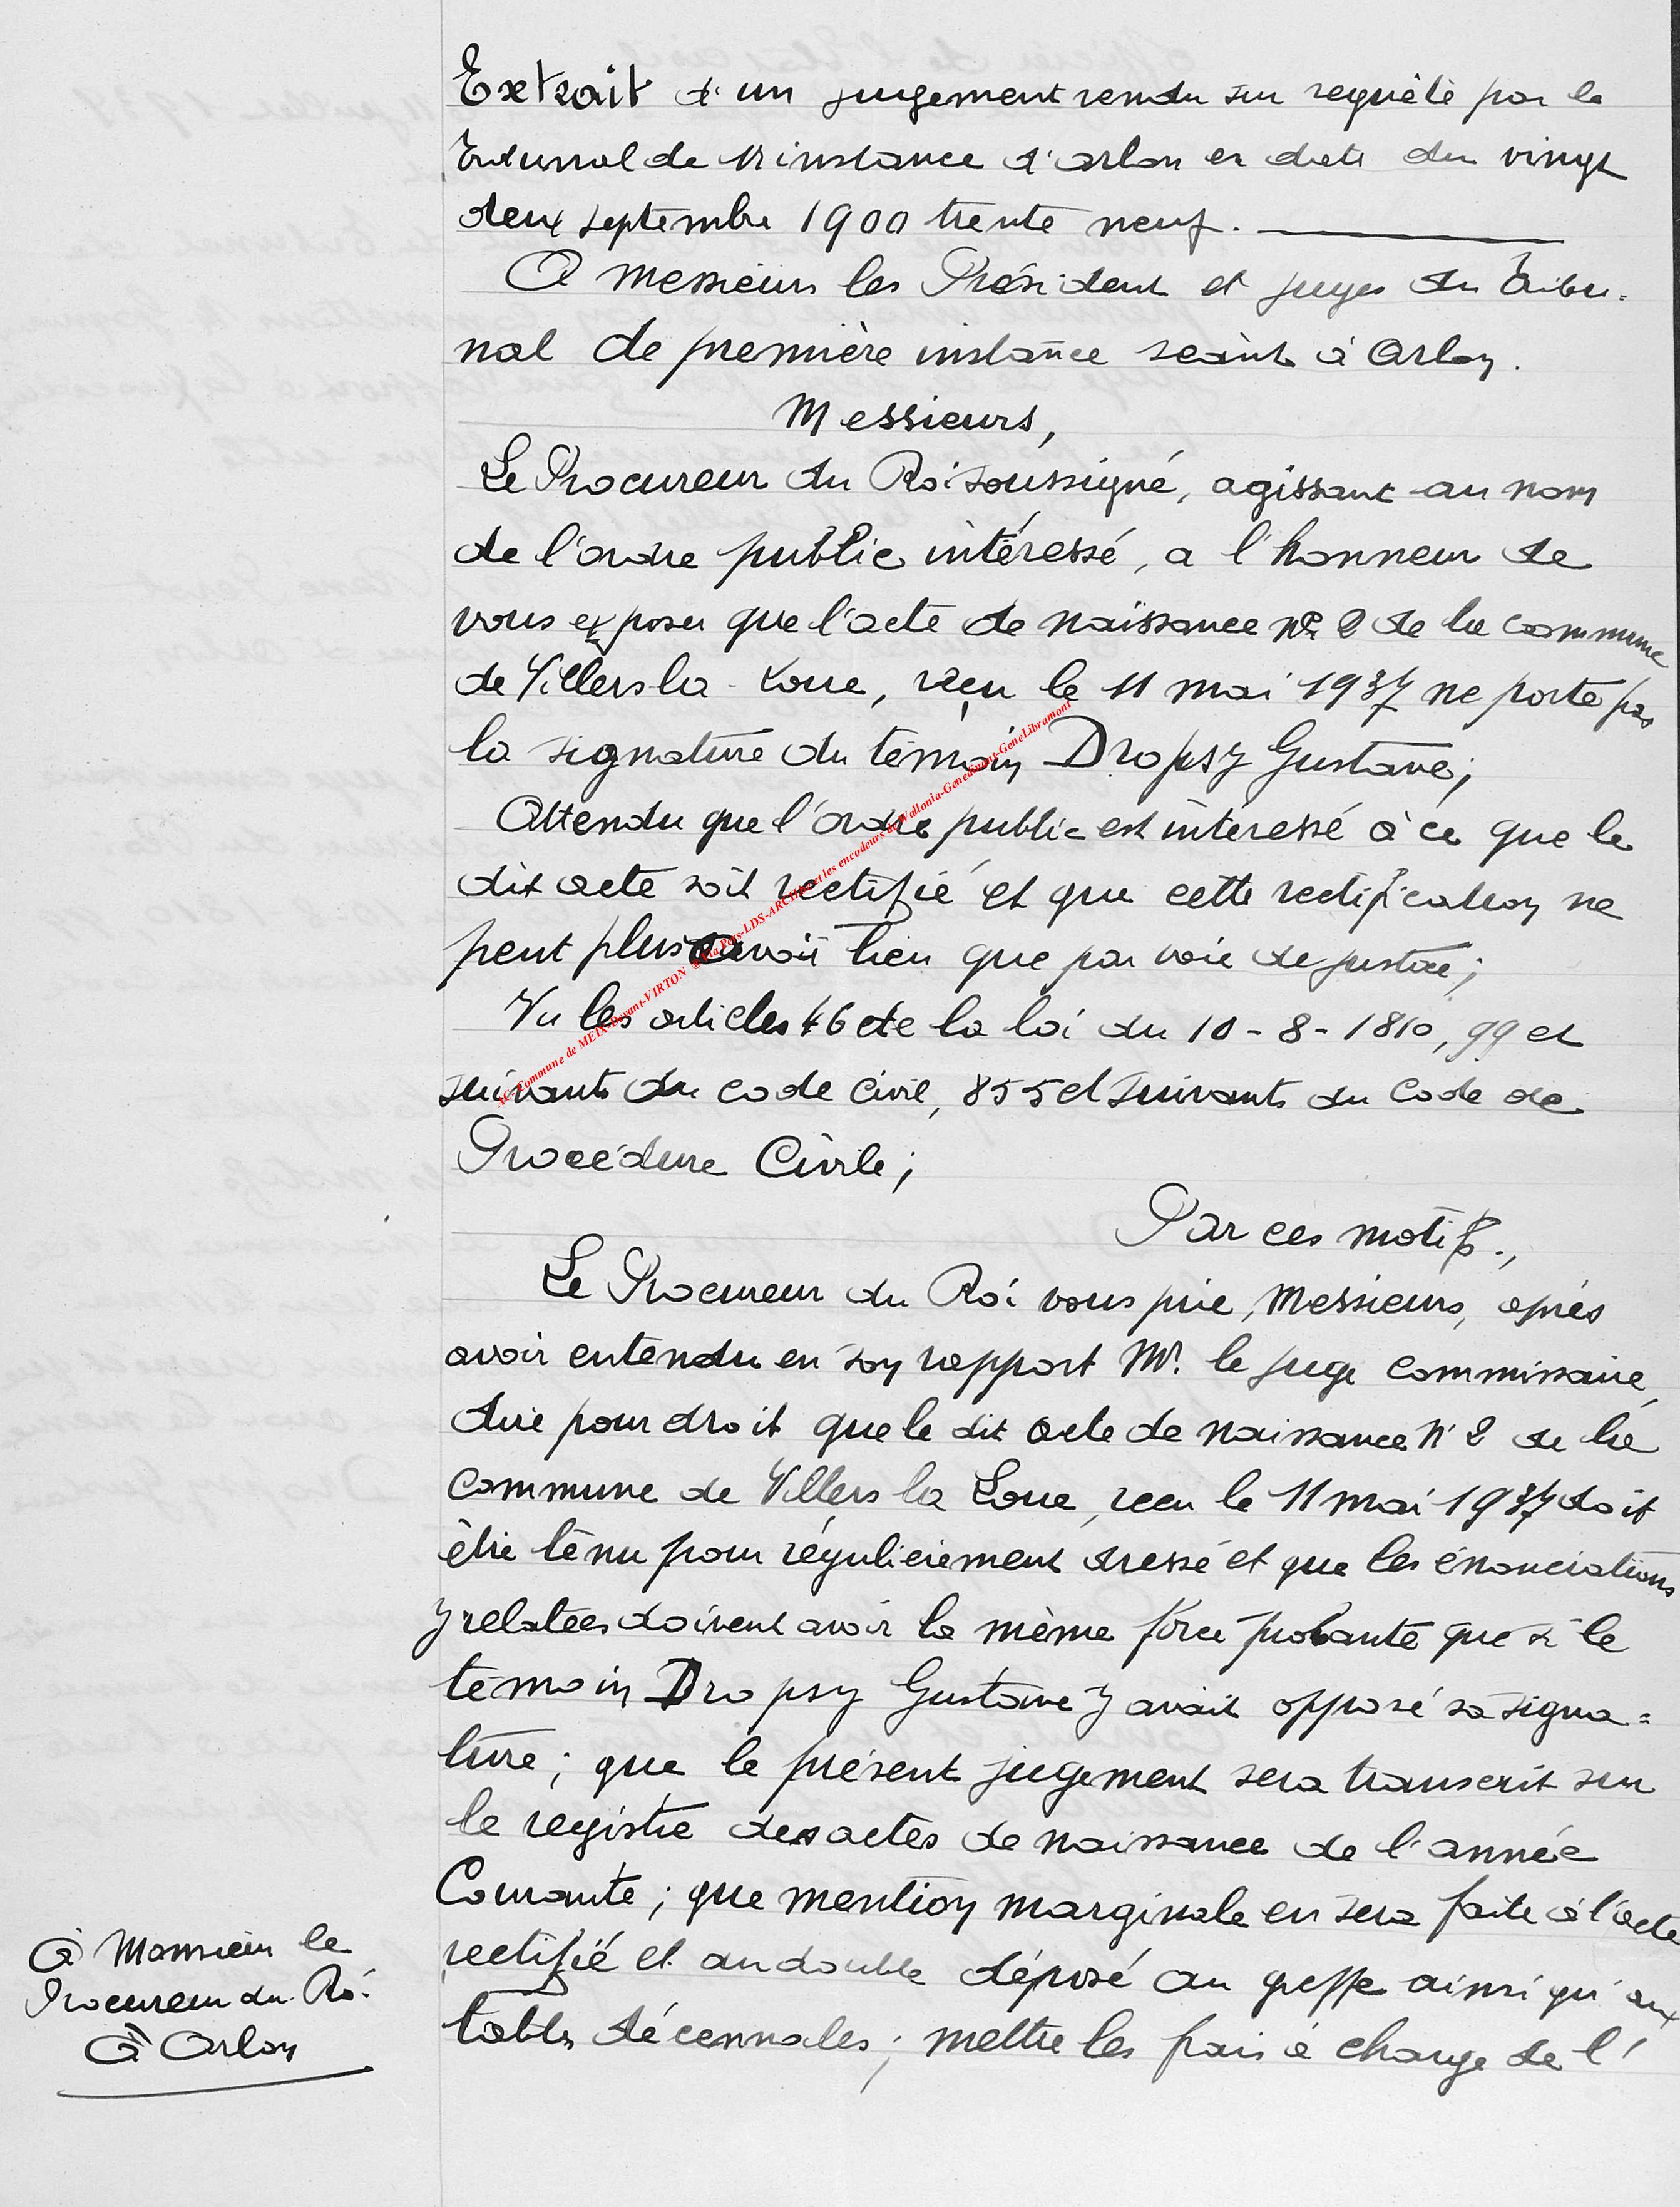 Extrait d'un jugement rendu sur requête par le
tribunal de 1re instance d'Arlon en date du vingt
deux septembre 1900 trente neuf.
A messieurs les Président et juges du Tribu-
nal de première instance séant à Arlon.
Messieurs,
Le Procureur du Roi soussigné, agissant au nom
de l'ordre public intéressé, a l'honneur de
vous exposer que l'acte de naissance n° 2 de la commune
de Villers la Loue, reçu le 11 mai 1937 ne porte pas
la signature du témoin Dropsy Gustave;
Attendu que l'ordre public est intéressé à ce que le
dit acte soit rectifié et que cette rectification ne
peut plus avoir lieu que par voie de justice;
Vu les articles 46 de la loi du 10-8-1810, 99 et
suivants du code civil, 855 et suivants du Code de
Procédure Civile;
Par ces motifs,
Le Procureur du Roi vous prie, Messieurs, après
avoir entendu en son rapport Mr. le juge commissaire,
dire pour droit que le dit acte de naissance n° 2 de la
commune de Villers la Loue, reçu le 11 mai 1937 doit
être tenu pour régulièrement dressé et que les énonciations
y relatées doivent avoir la même force probante que si le
témoin Dropsy Gustave y avait apposé sa signa=
ture; que le présent jugement sera transcrit sur
le registre des actes de naissance de l'année
Courante; que mention marginale en sera faite à l'acte
rectifié et au double déposé au greffe ainsi qu'aux
tables décennales; mettre les frais à charge de l'
A Monsieur le
Procureur du Roi
à Arlon
AC-Commune de MEIX-Devant-VIRTON
et les encodeurs de Wallonia-Genedinant-GeneLibramont